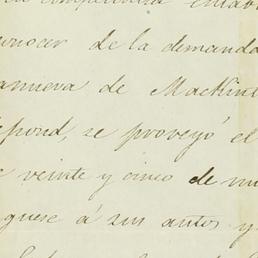 conocer de la demanda
anueva de Mackint
pond, se proveyó el
veinte y cinco de mi
guese á sus autos y